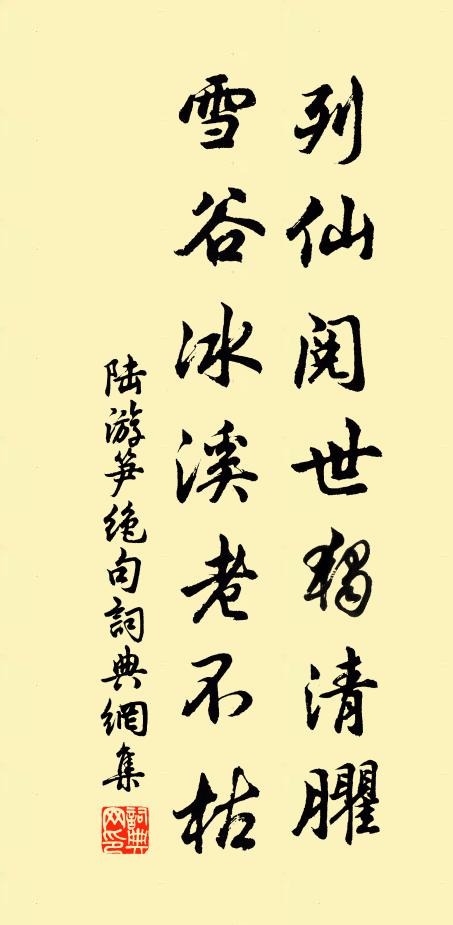 列仙阅世独清臞
雪谷冰溪老不枯
陆游笋绝句詞典網集
詞典網印